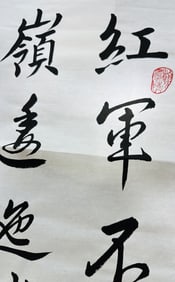 紅軍不
嶺逶迤